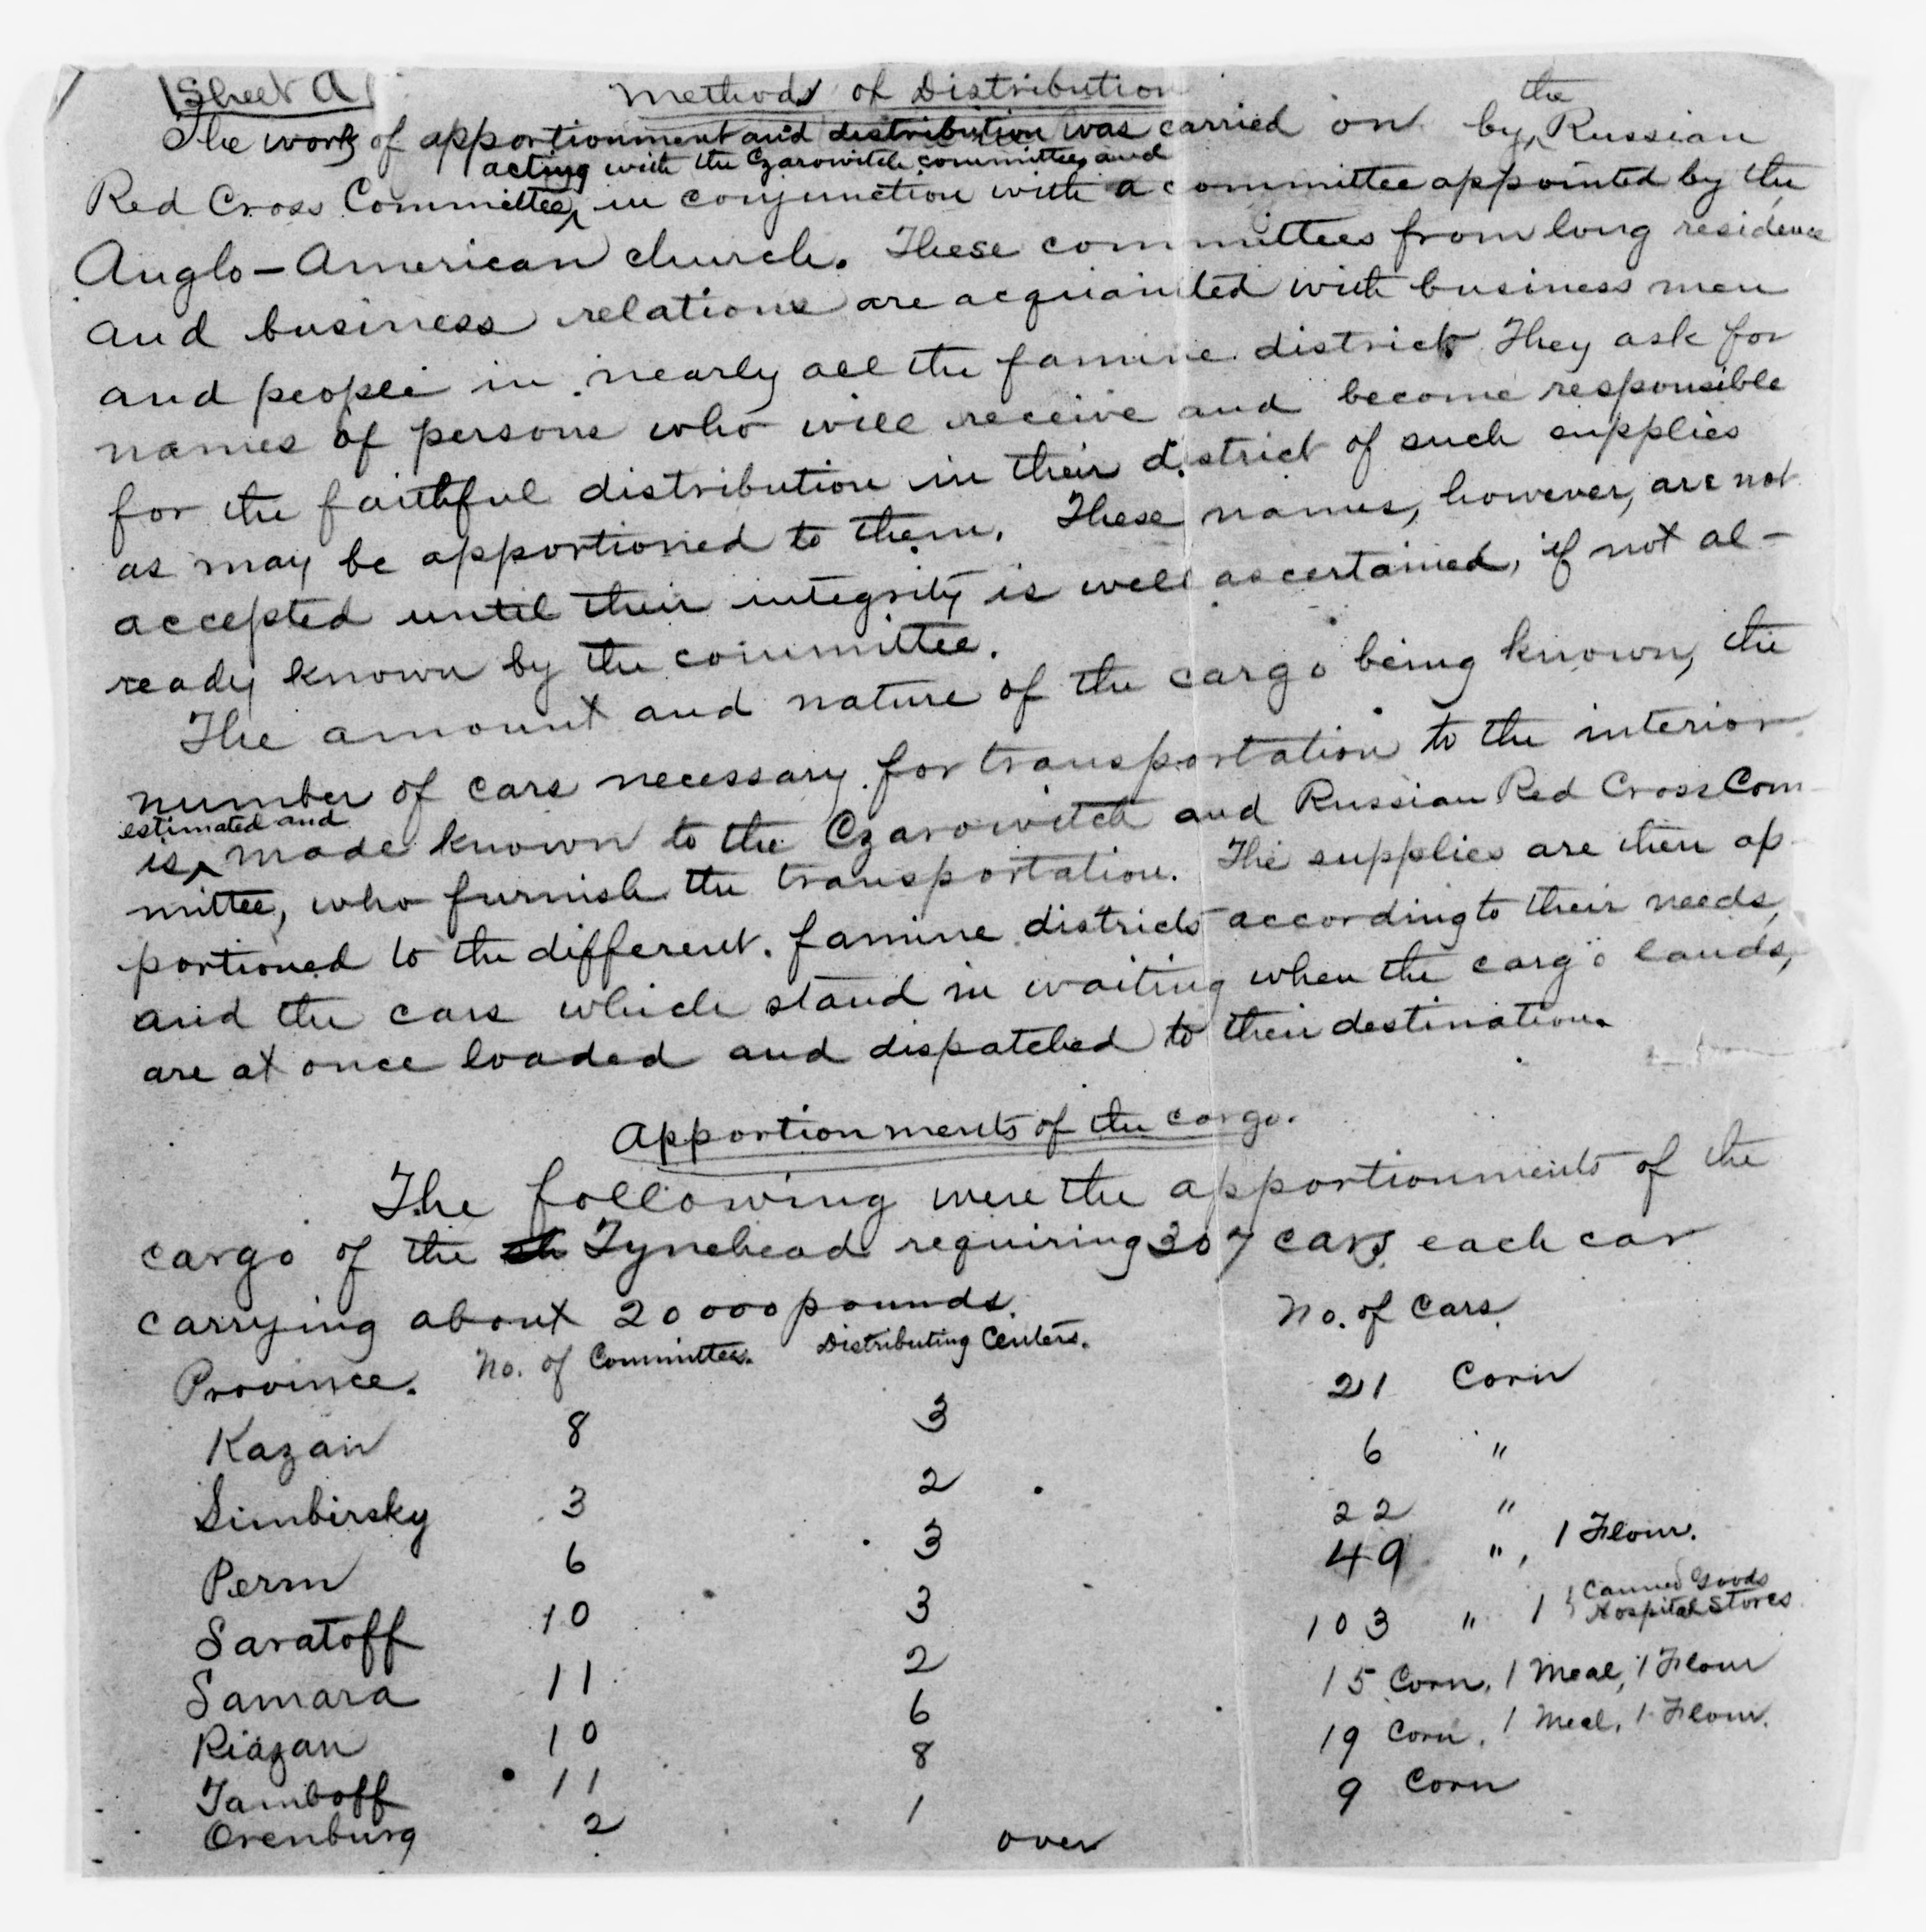 Sheet A
Methods of Distribution
The work of apportionment and distribution was carried on by the Russian
Red Cross Committee, acting with the Czarowitch committee, and in conjunction with a committee appointed by the
Anglo-American church. These committees from long residence
and business relations are acquainted with business men
and people in nearly all the famine district. They ask for
names of persons who will receive and become responsible
for the faithful distribution in their district of such supplies
as may be apportioned to them. These names, however, are not
accepted until their integrity is well ascertained, if not al-
ready known by the committee.
The amount and nature of the cargo being known, the
number of cars necessary for transportation to the interior
is estimated and made known to the Czarowitch and Russian Red Cross Com-
mittee, who furnish the transportation. The supplies are then ap-
portioned to the different famine districts according to their needs,
and the cars which stand in waiting when the cargo lands,
are at once loaded and dispatched to their destination.
Apportionments of the cargo.
The following were the apportionments of the
cargo of the Tynehead requiring 307 cars, each car
carrying about 20000 pounds.
Province. No. of Committee. Distributing Centers. No. of Cars.
Kazan 8 3 21 Corn
Simbirsky 3 2 6 "
Perm 6 3 22 "
Saratoff 10 3 49 ", 1 Flour.
Samara 11 2 103 " 1 { Canned Goods Hospital Stores
Riazan 10 6 15 Corn, 1 Meal, 1 Flour
Tamboff 11 8 19 Corn, 1 Meal, 1 Flour.
Orenburg 2 1 9 Corn
over